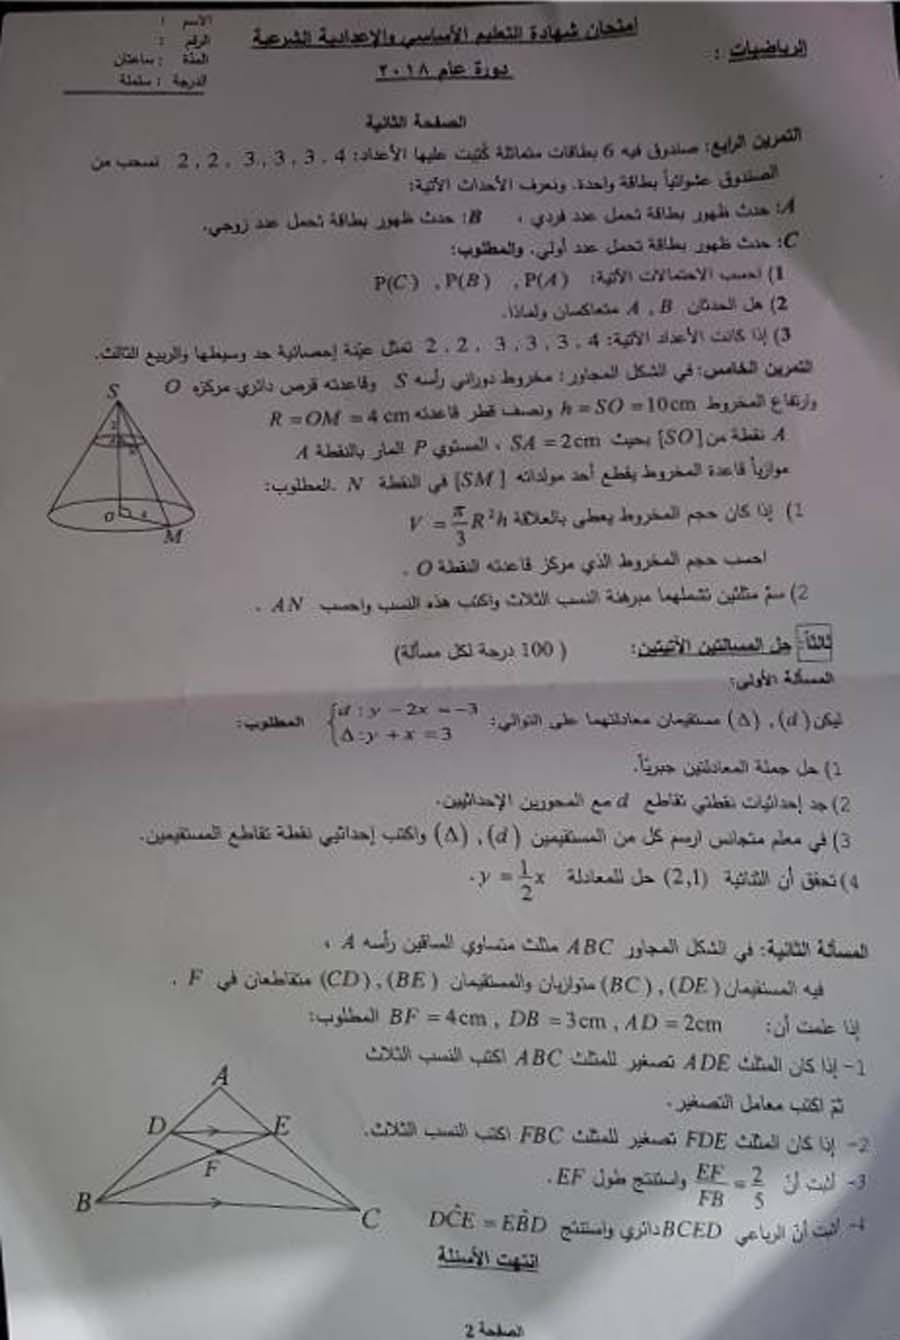 امتحان شهادة التعليم الأساسي والإعدادية الشرعية
الرياضيات :
دورة عام ٢٠١٨
الاسم :
الرقم :
المدة : ساعتان
الدرجة : ستمئة
الصفحة الثانية
التمرين الرابع: صندوق فيه 6 بطاقات متماثلة كُتبت عليها الأعداد: 2 , 2 , 3 , 3 , 3 , 4 نسحب من
الصندوق عشوائياً بطاقة واحدة. ونعرف الأحداث الآتية:
A: حدث ظهور بطاقة تحمل عدد فردي ، B: حدث ظهور بطاقة تحمل عدد زوجي.
C: حدث ظهور بطاقة تحمل عدد أولي. والمطلوب:
1) احسب الاحتمالات الآتية: P(A) , P(B) , P(C)
2) هل الحدثان A , B متعاكسان ولماذا.
3) إذا كانت الأعداد الآتية: 2 , 2 , 3 , 3 , 3 , 4 تمثل عيّنة إحصائية جد وسيطها والربيع الثالث.
التمرين الخامس: في الشكل المجاور: مخروط دوراني رأسه S وقاعدته قرص دائري مركزه O
وارتفاع المخروط h = SO = 10cm ونصف قطر قاعدته R = OM = 4 cm
A نقطة من [SO] بحيث SA = 2cm ، المستوي P المار بالنقطة A
موازياً قاعدة المخروط يقطع أحد مولداته [SM] في النقطة N .المطلوب:
1) إذا كان حجم المخروط يعطى بالعلاقة V = π/3 R²h
احسب حجم المخروط الذي مركز قاعدته النقطة O .
2) سمّ مثلثين تشملهما مبرهنة النسب الثلاث واكتب هذه النسب واحسب AN .
S
O
M
ثالثاً- حل المسألتين الآتيتين: ( 100 درجة لكل مسألة)
المسألة الأولى:
ليكن (d) , (Δ) مستقيمان معادلتهما على التوالي: { d : y − 2x = −3 المطلوب:
Δ : y + x = 3
1) حل جملة المعادلتين جبرياً.
2) جد إحداثيات نقطتي تقاطع d مع المحورين الإحداثيين.
3) في معلم متجانس ارسم كل من المستقيمين (d) , (Δ) واكتب إحداثيي نقطة تقاطع المستقيمين.
4) تحقق أن الثنائية (2,1) حل للمعادلة y = 1/2 x .
المسألة الثانية: في الشكل المجاور ABC مثلث متساوي الساقين رأسه A ،
فيه المستقيمان (DE) , (BC) متوازيان والمستقيمان (BE) , (CD) متقاطعان في F .
إذا علمت أن: BF = 4cm , DB = 3cm , AD = 2cm المطلوب:
1- إذا كان المثلث ADE تصغير للمثلث ABC اكتب النسب الثلاث
ثمّ اكتب معامل التصغير.
2- إذا كان المثلث FDE تصغير للمثلث FBC اكتب النسب الثلاث.
3- أثبت أن EF/FB = 2/5 واستنتج طول EF.
4- أثبت أن الرباعي BCED دائري واستنتج DĈE = EB̂D
A
D
E
F
B
C
انتهت الأسئلة
الصفحة 2